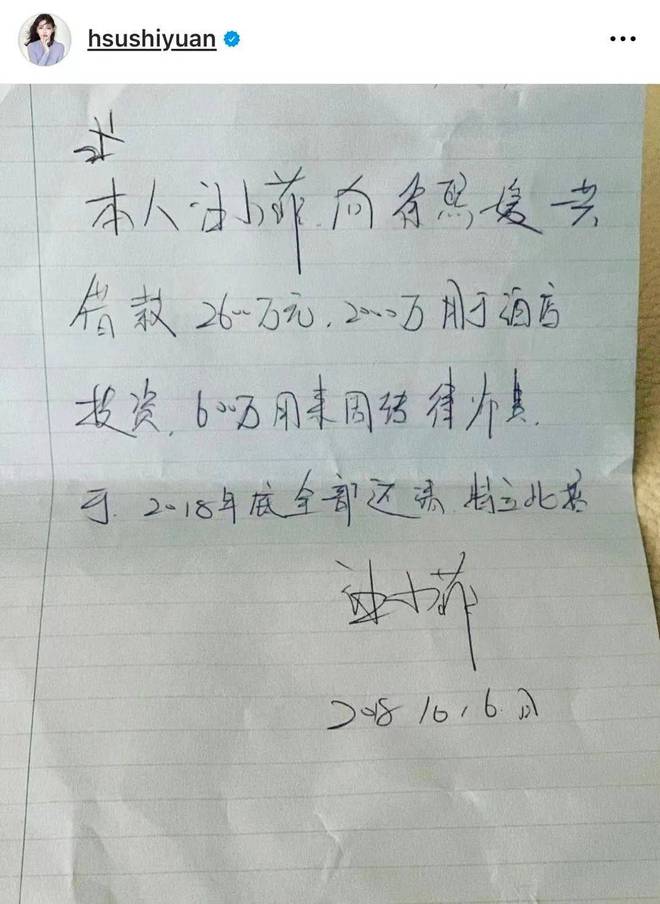 hsushiyuan
本人汪小菲.向徐熙媛共
借款2600万元.2000万用于酒店
投资.600万用来周转律师费.
于.2018年底全部还清.特立此据
汪小菲
2018 10.6.